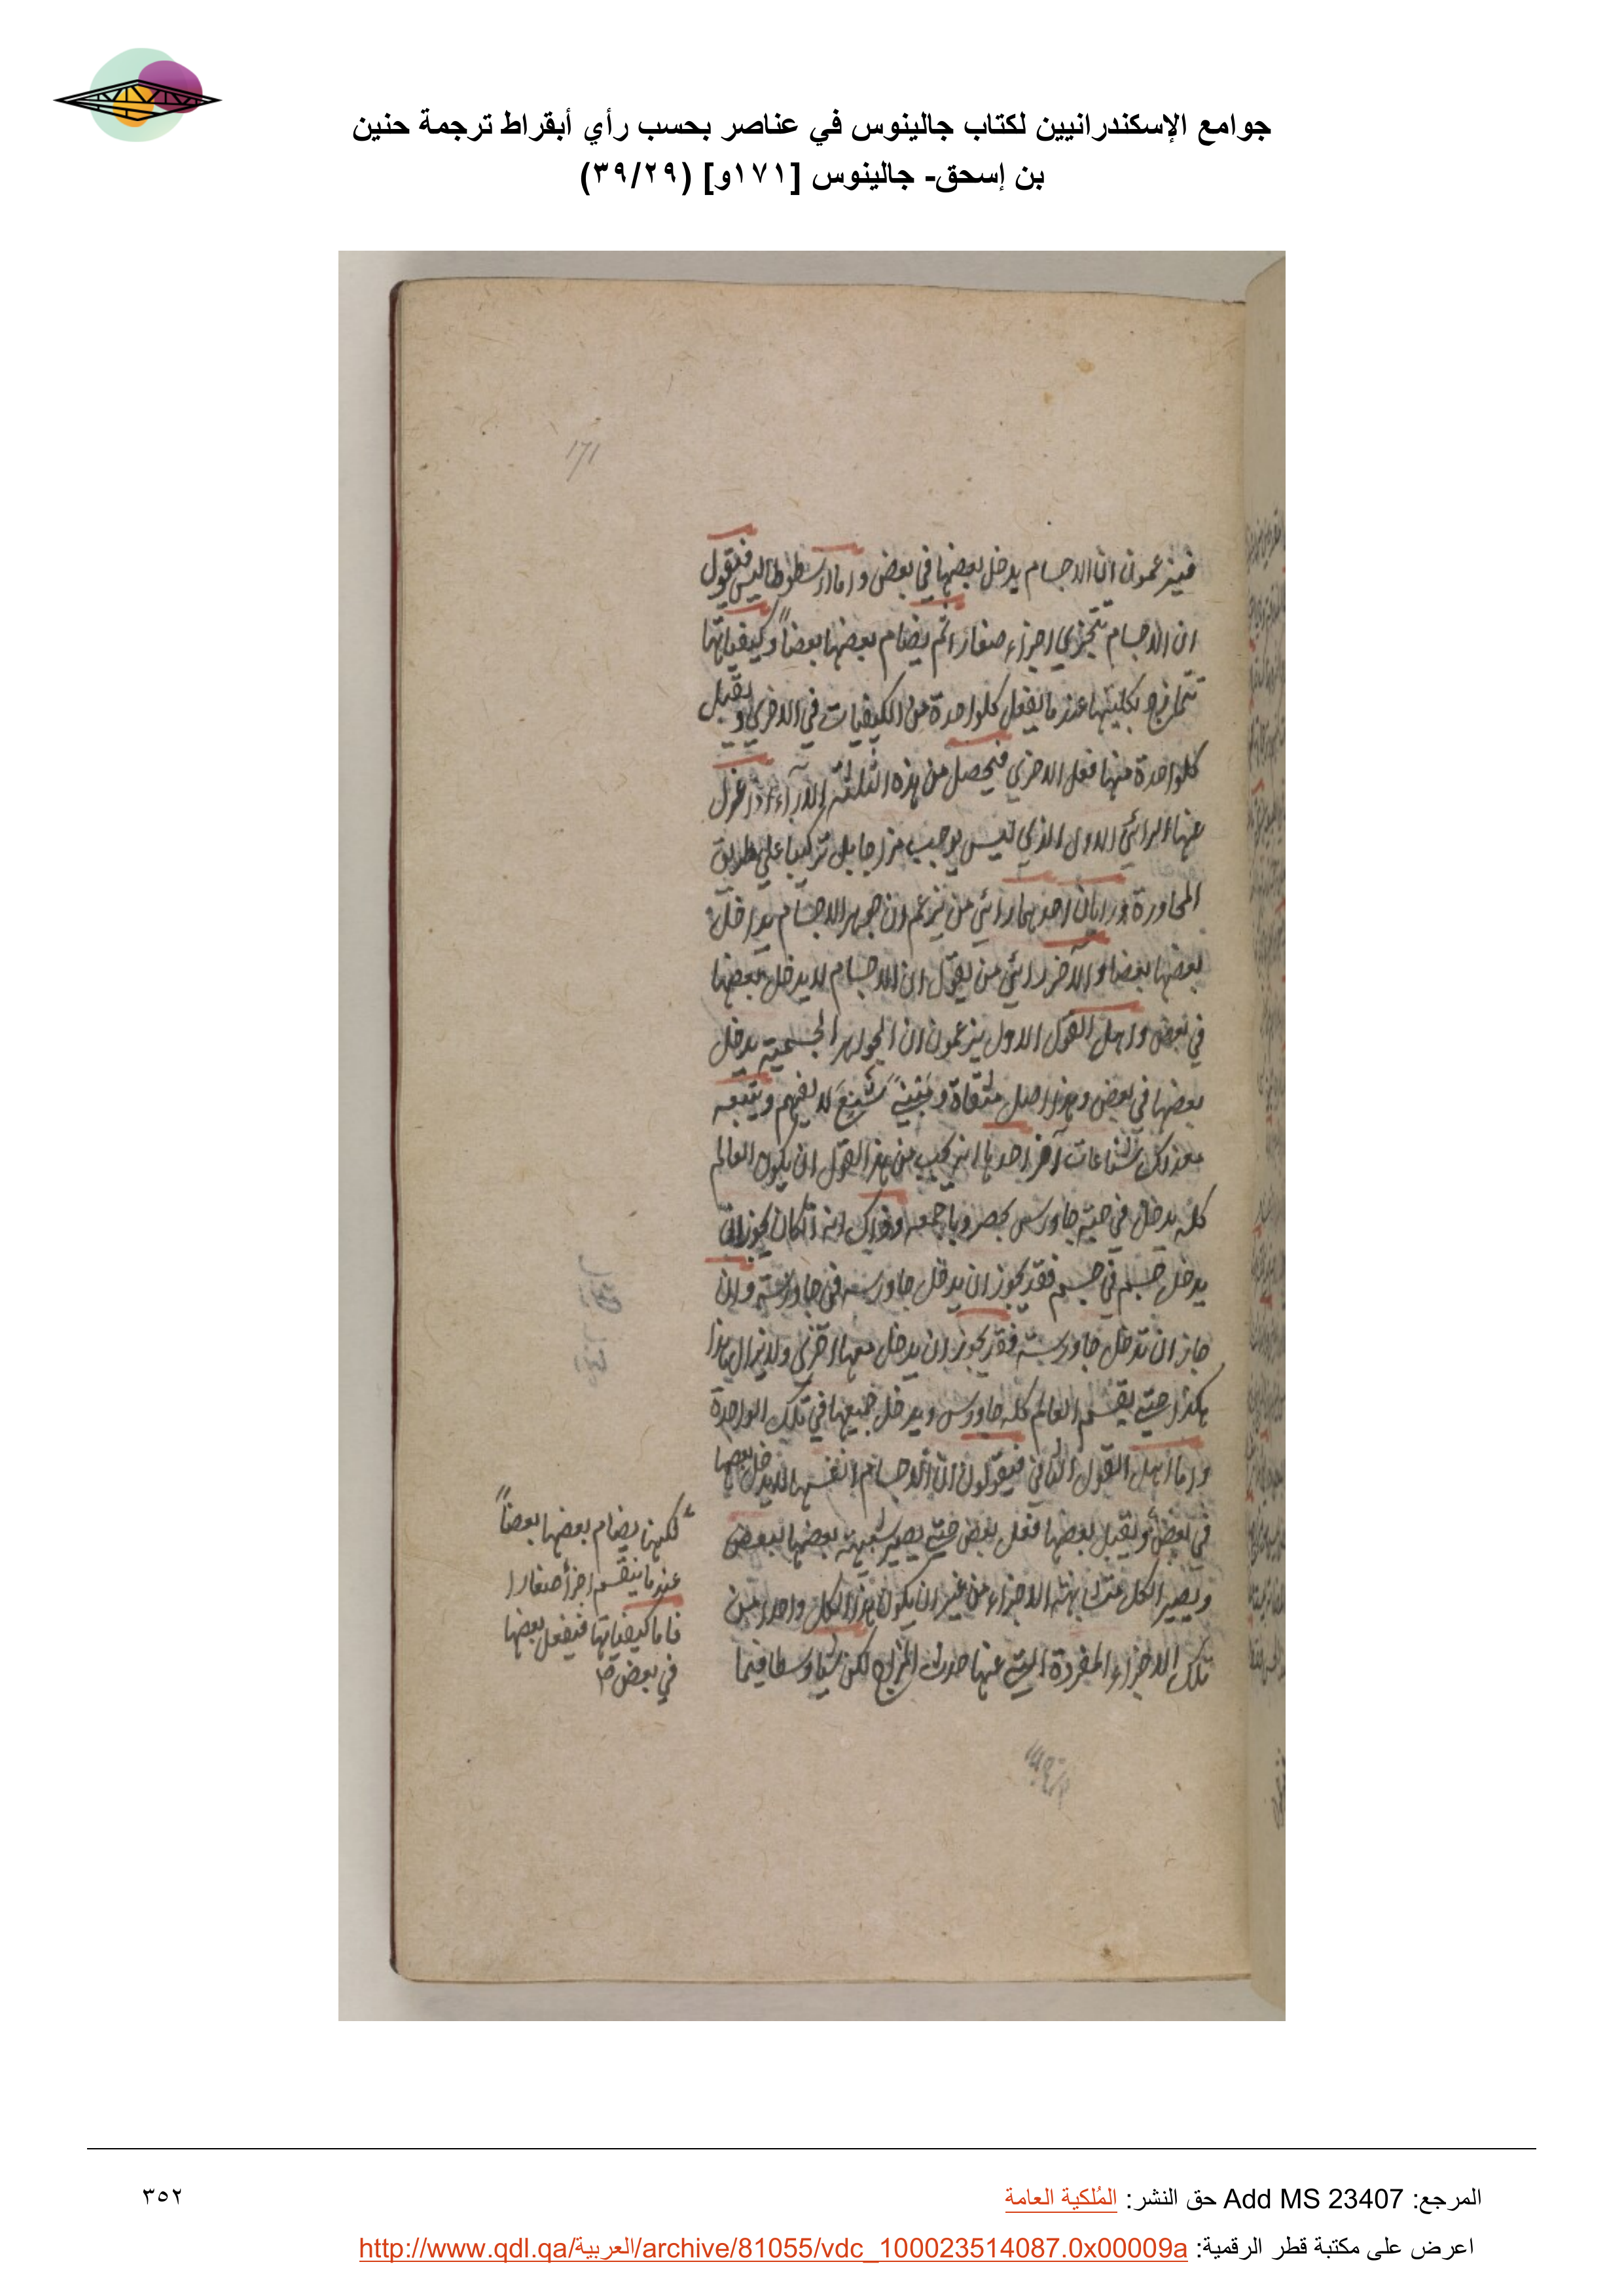 جوامع الإسكندرانيين لكتاب جالينوس في عناصر بحسب رأي أبقراط ترجمة حنين
بن إسحق- جالينوس [١٧١و] (٣٩/٢٩)
171
فيزعمون ان الاجسام يدخل بعضها في بعض واما ارسطوطاليس فيقول
ان الاجسام تتجزي اجزاء صغار اثم يضام بعضها بعضاً وكيفياتها
تتمازج بكليتها عند ما يفعل كلواحدة من الكيفيات في الاخري ويقبل
كلواحدة منها فعل الاخري فيحصل من هذه الثلثة الآراء اذا عزل
عنها الرائي الاول الذي ليس يوجب مزاجا بل تركيبا علي طريق
المجاورة رايان احدهما رائي من يزعم ان جوهر الاجسام يداخل
بعضها بعضا والآخر رائي من يقول ان الاجسام لا يدخل بعضها
في بعض واهل القول الاول يزعمون ان الجواهر الجسمية يدخل
بعضها في بعض وهذا اصل شنع لا يفهم ويتبعه
بعد ذلك شناعات آخر احدها انه يجب من هذا القول ان يكون العالم
كله يدخل في حبة جاورس وذلك انه ان كان يجوز ان
يدخل جسم في جسم فقد يجوز ان يدخل جاورسة في جاورسة وان
جاز ان تدخل جاورسة فقد يجوز ان يدخل معها اخري ولا يزال هذا
هكذا حتي يقسم العالم كله جاورس ويدخل جميعها في تلك الواحدة
واما اهل القول الثاني فيقولون ان الاجسام انفسها لا يدخل بعضها
في بعض ويقبل بعضها فعل بعض حتي يصير شبيهة بعضها ببعض
ويصير الكل متشابهة الاجزاء من غير ان يكون هذا الكل واحدا من
تلك الاجزاء المفردة التي عنها حدث المزاج لكن شيا وسطا فيما
لكنها يضام بعضها بعضاً
عند ما ينقسم اجزأ صغارا
فاما كيفياتها فيفعل بعضها
في بعض
المرجع: Add MS 23407 حق النشر: المُلكية العامة
٣٥٢
اعرض على مكتبة قطر الرقمية: http://www.qdl.qa/العربية/archive/81055/vdc_100023514087.0x00009a